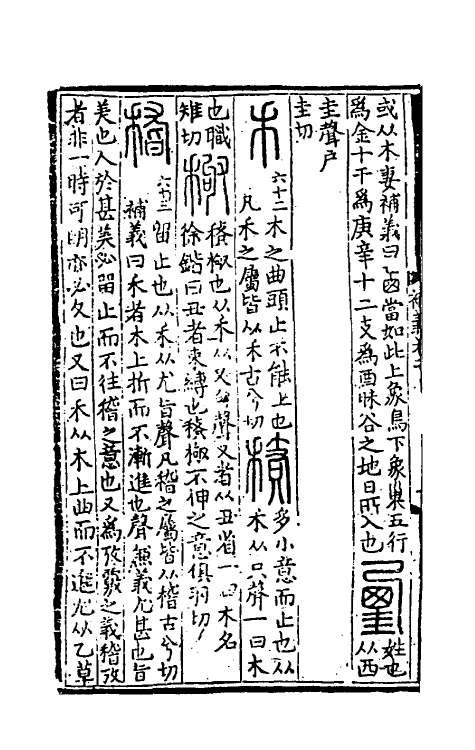 或从木妻補義曰㢴當如此上象鳥下象巢五行
爲金十干爲庚辛十二支爲酉昧谷之地日所入也 姓也从西
圭聲戶
圭切
六十二木之曲頭止不能上也
凡禾之屬皆从禾古兮切 多小意而止也从
禾从只聲一曰木
也職
雉切 䅩䅩也从禾从又句聲又者从丑省一曰木名
徐鍇曰丑者束縛也䅩䅩不伸之意俱羽切
六十三畱止也从禾从尤旨聲凡稽之屬皆从稽古兮切
補義曰禾者木上折而不漸進也聲兼義尤甚也旨
美也人於甚美必畱止而不往稽之意也又爲攷覈之義稽攷
者非一時可明亦必久也又曰禾从木上曲而不進尤从乙草